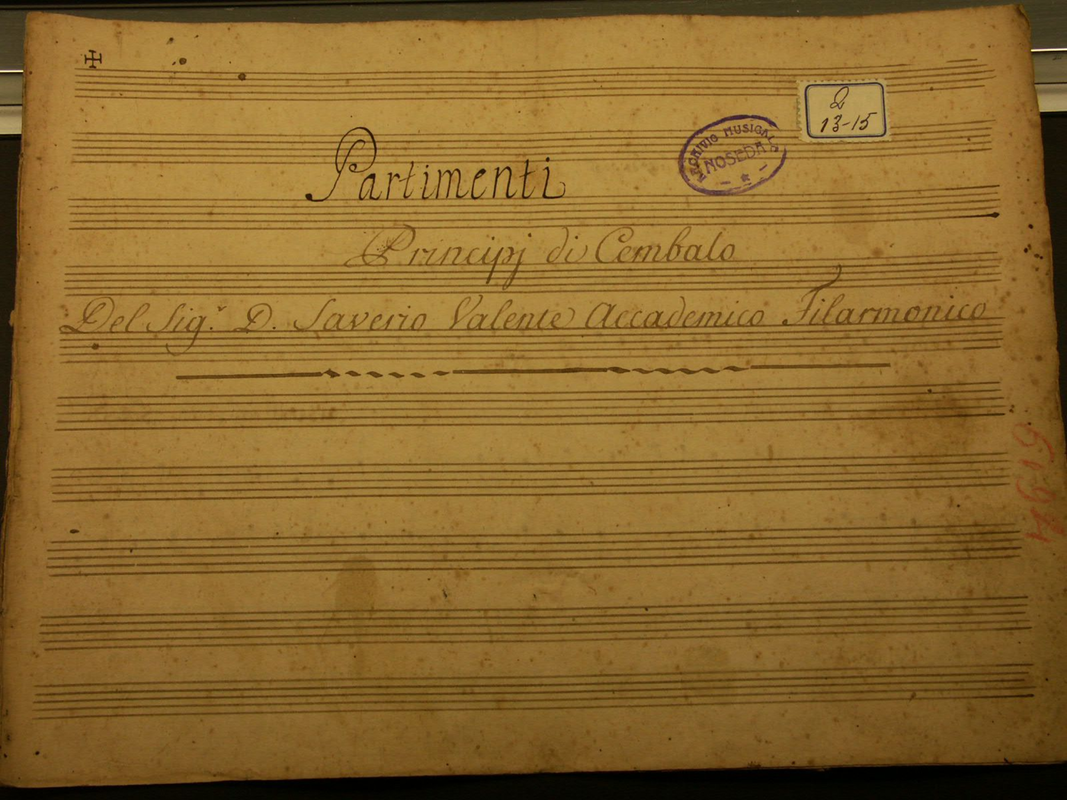 Q
13-15
ARCHIVIO MUSICALE
NOSEDA
Partimenti
Principj di Cembalo
Del Sig.r D. Saverio Valente Accademico Filarmonico